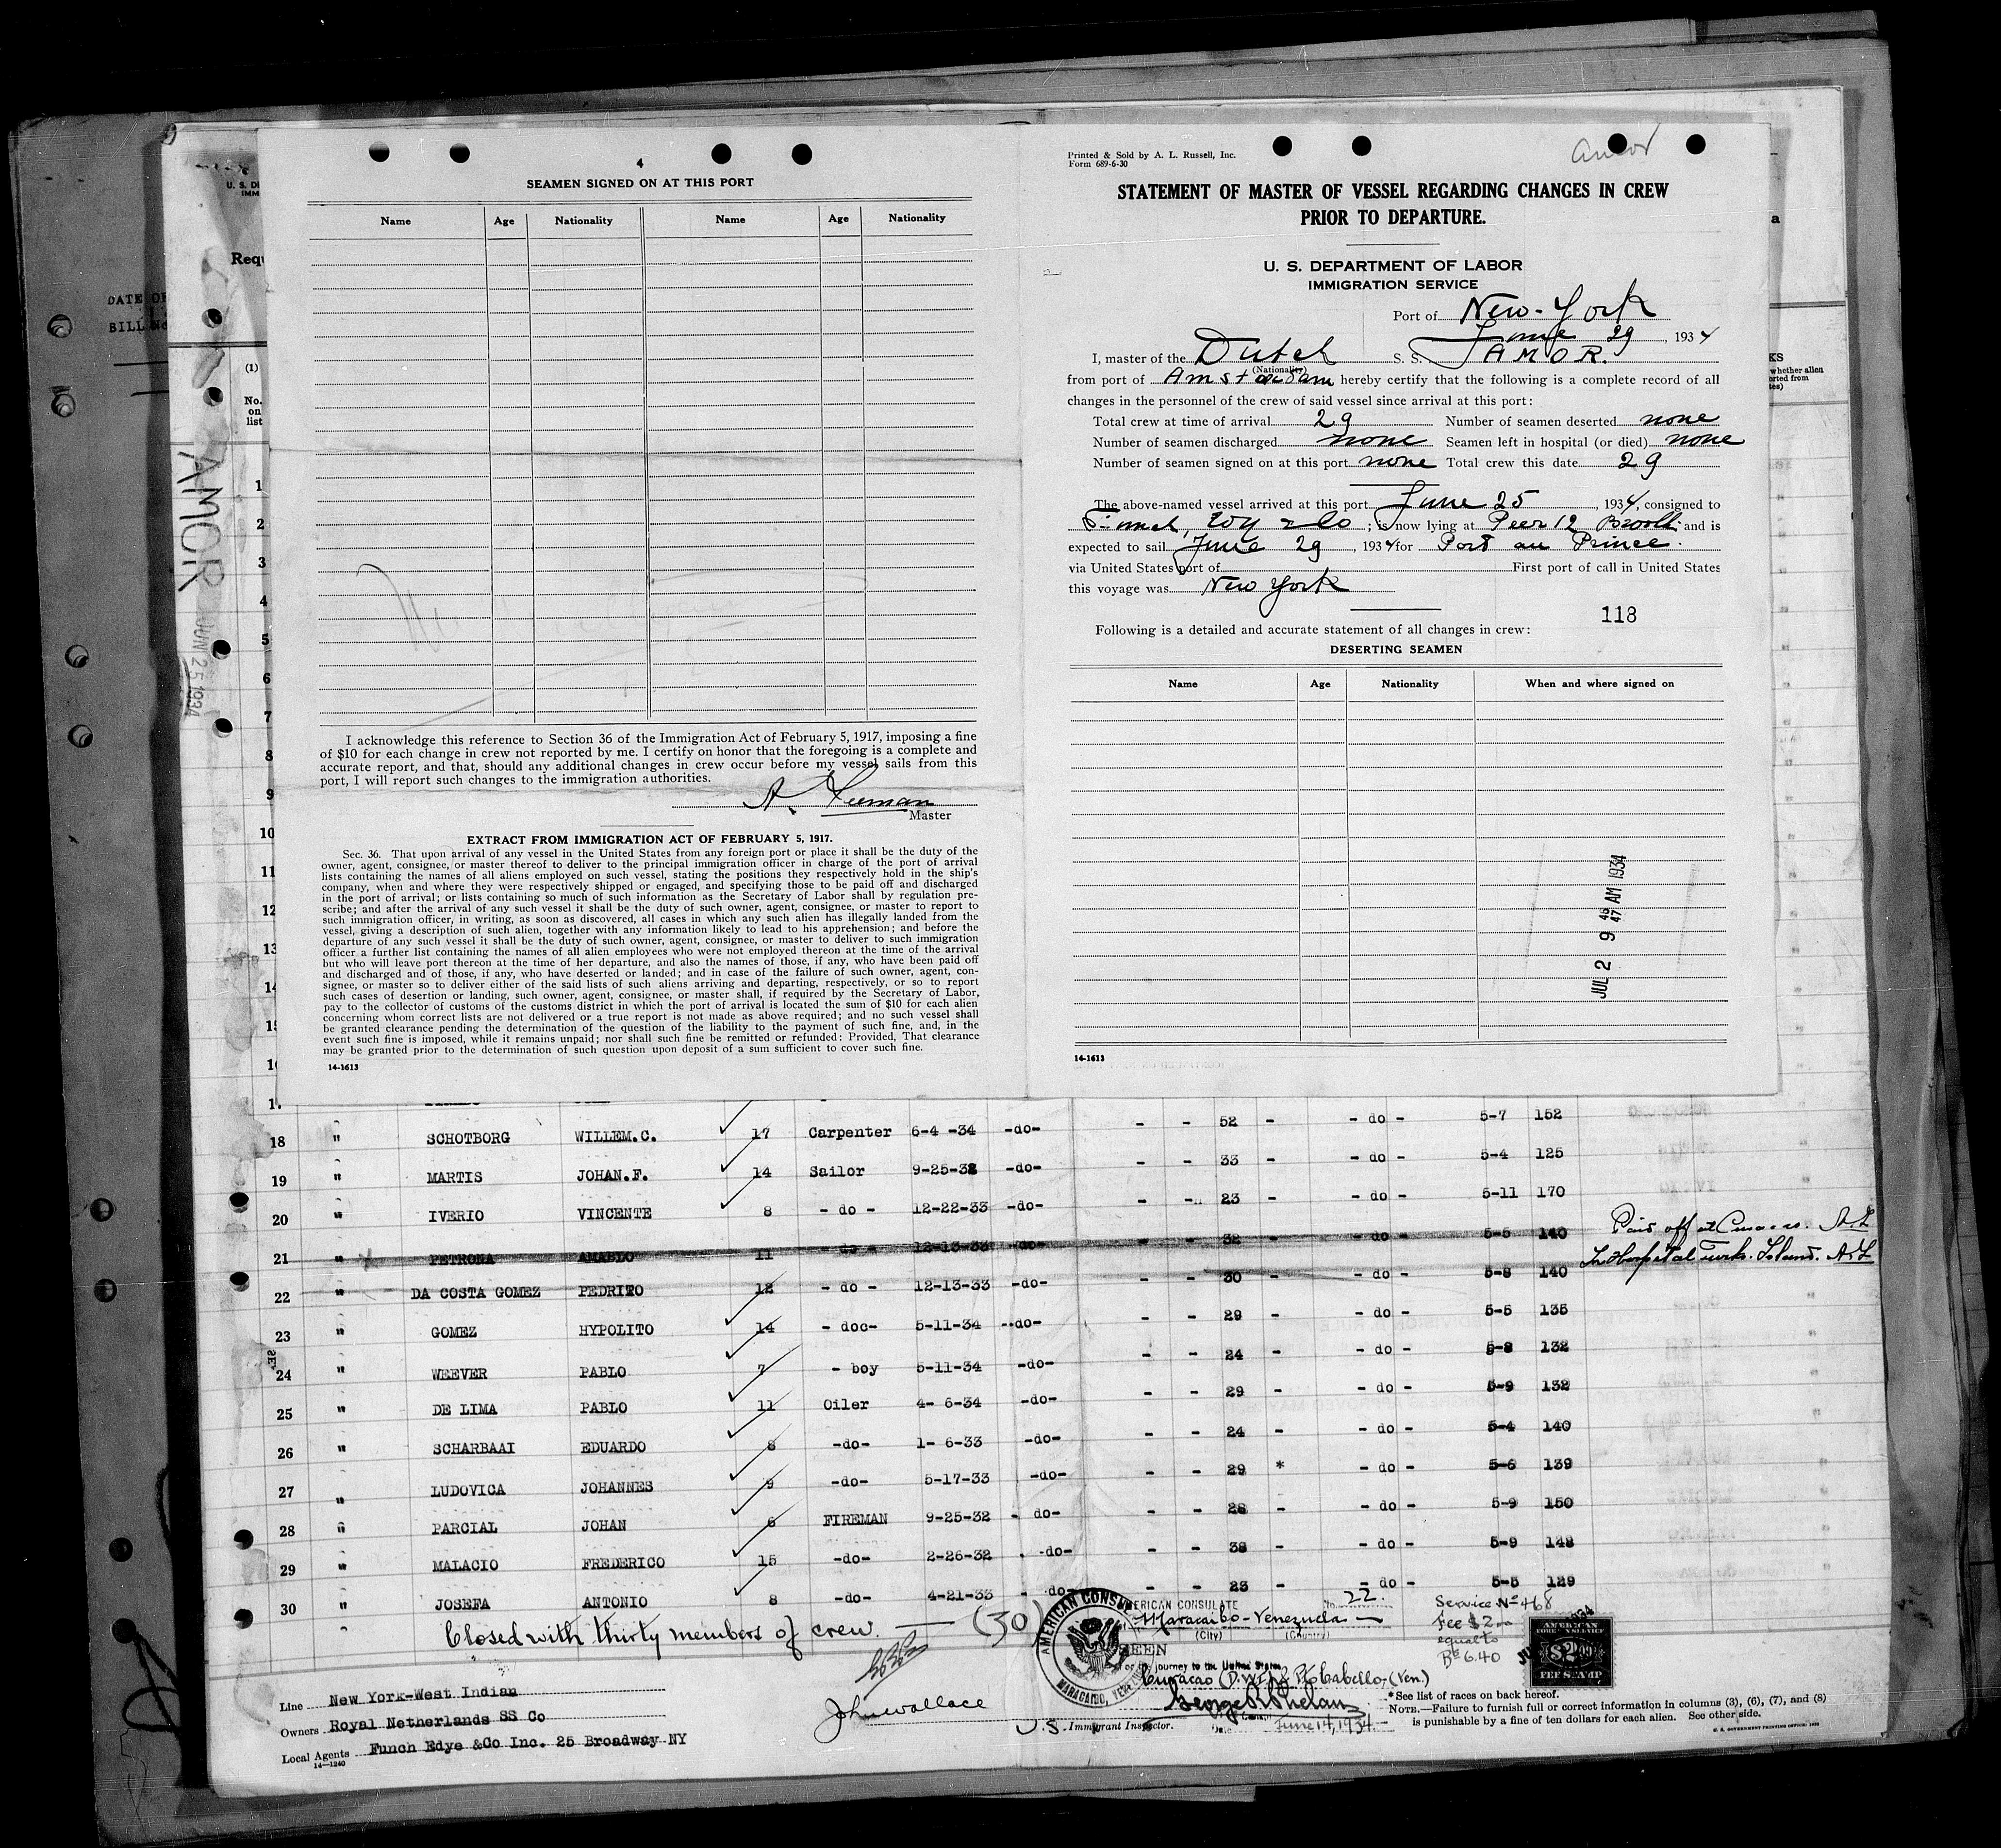 4
SEAMEN SIGNED ON AT THIS PORT
Name Age Nationality Name Age Nationality
I acknowledge this reference to Section 36 of the Immigration Act of February 5, 1917, imposing a fine
of $10 for each change in crew not reported by me. I certify on honor that the foregoing is a complete and
accurate report, and that, should any additional changes in crew occur before my vessel sails from this
port, I will report such changes to the immigration authorities.
Master
EXTRACT FROM IMMIGRATION ACT OF FEBRUARY 5, 1917.
Sec. 36. That upon arrival of any vessel in the United States from any foreign port or place it shall be the duty of the
owner, agent, consignee, or master thereof to deliver to the principal immigration officer in charge of the port of arrival
lists containing the names of all aliens employed on such vessel, stating the positions they respectively hold in the ship's
company, when and where they were respectively shipped or engaged, and specifying those to be paid off and discharged
in the port of arrival; or lists containing so much of such information as the Secretary of Labor shall by regulation pre-
scribe; and after the arrival of any such vessel it shall be the duty of such owner, agent, consignee, or master to report to
such immigration officer, in writing, as soon as discovered, all cases in which any such alien has illegally landed from the
vessel, giving a description of such alien, together with any information likely to lead to his apprehension; and before the
departure of any such vessel it shall be the duty of such owner, agent, consignee, or master to deliver to such immigration
officer a further list containing the names of all alien employees who were not employed thereon at the time of the arrival
but who will leave port thereon at the time of her departure, and also the names of those, if any, who have been paid off
and discharged and of those, if any, who have deserted or landed; and in case of the failure of such owner, agent, con-
signee, or master so to deliver either of the said lists of such aliens arriving and departing, respectively, or so to report
such cases of desertion or landing, such owner, agent, consignee, or master shall, if required by the Secretary of Labor,
pay to the collector of customs of the customs district in which the port of arrival is located the sum of $10 for each alien
concerning whom correct lists are not delivered or a true report is not made as above required; and no such vessel shall
be granted clearance pending the determination of the question of the liability to the payment of such fine, and, in the
event such fine is imposed, while it remains unpaid; nor shall such fine be remitted or refunded: Provided, That clearance
may be granted prior to the determination of such question upon deposit of a sum sufficient to cover such fine.
14-1613
Printed & Sold by A. L. Russell, Inc.
Form 689-6-30
Amor
STATEMENT OF MASTER OF VESSEL REGARDING CHANGES IN CREW
PRIOR TO DEPARTURE.
U. S. DEPARTMENT OF LABOR
IMMIGRATION SERVICE
Port of New-York
June 29, 1934
I, master of the Dutch S. S. AMOR.
(Nationality)
from port of Amsterdam hereby certify that the following is a complete record of all
changes in the personnel of the crew of said vessel since arrival at this port:
Total crew at time of arrival 29 Number of seamen deserted none
Number of seamen discharged none Seamen left in hospital (or died) none
Number of seamen signed on at this port none Total crew this date 29
The above-named vessel arrived at this port June 25, 1934, consigned to
; is now lying at Peer 12 and is
expected to sail June 29, 1934 for Port au Prince.
via United States port of First port of call in United States
this voyage was New York
118
Following is a detailed and accurate statement of all changes in crew:
DESERTING SEAMEN
Name Age Nationality When and where signed on
JUL 2 9 AM 1934
14-1613
DATE OF
BILL No
AMOR
JUN 25 1934
(1)
No.
on
list
1
2
3
4
5
6
7
8
9
10
11
12
13
14
18 " SCHOTBORG WILLEM.C. 17 Carpenter 6-4 -34 -do- - - 52 - - do - 5-7 152
19 " MARTIS JOHAN.F. 14 Sailor 9-25-32 -do- - - 33 - - do - 5-4 125
20 " IVERIO VINCENTE 8 - do - 12-22-33 -do- - - 23 - - do - 5-11 170
21 " PETRONA AMABLO 11 - do - 12-13-33 -do- - - 32 - - do - 5-5 140 Paid off at
22 " DA COSTA GOMEZ PEDRITO 12 - do - 12-13-33 -do- - - 30 - - do - 5-8 140 In Hospital Turks. Island.
23 " GOMEZ HYPOLITO 14 - doc- 5-11-34 -do- - - 29 - - do - 5-5 135
24 " WEEVER PABLO 7 - boy 5-11-34 -do- - - 24 - - do - 5-8 132
25 " DE LIMA PABLO 11 Oiler 4- 6-34 -do- - - 29 - - do - 5-9 132
26 " SCHARBAAI EDUARDO 8 -do- 1- 6-33 -do- - - 24 - - do - 5-4 140
27 " LUDOVICA JOHANNES 9 -do- 5-17-33 -do- - - 29 * - do - 5-6 139
28 " PARCIAL JOHAN 6 FIREMAN 9-25-32 - do- - - 28 - - do - 5-9 150
29 " MALACIO FREDERICO 15 -do- 2-26-32 -do- - - 38 - - do - 5-9 148
30 " JOSEFA ANTONIO 8 -do- 4-21-33 - do- - - 23 - - do - 5-5 129
Closed with thirty members of crew. — (30)
AMERICAN CONSULATE No. 22.
Maracaibo-Venezuela
(City) (Country)
SEEN
For the journey to the United States
Curacao (D.W.I.) & Pto Cabello, (Ven.)
George R. Phelan
June 14, 1934
Service No 468
Fee $2.00
equal to
Bs 6.40
AMERICAN
FOREIGN SERVICE
$2.00
FEE STAMP
Line New York-West Indian
Owners Royal Netherlands SS Co
Local Agents Funch Edye &Co Inc. 25 Broadway NY
14-1240
John Wallace
U.S. Immigrant Inspector.
* See list of races on back hereof.
NOTE.—Failure to furnish full or correct information in columns (3), (6), (7), and (8)
is punishable by a fine of ten dollars for each alien. See other side.